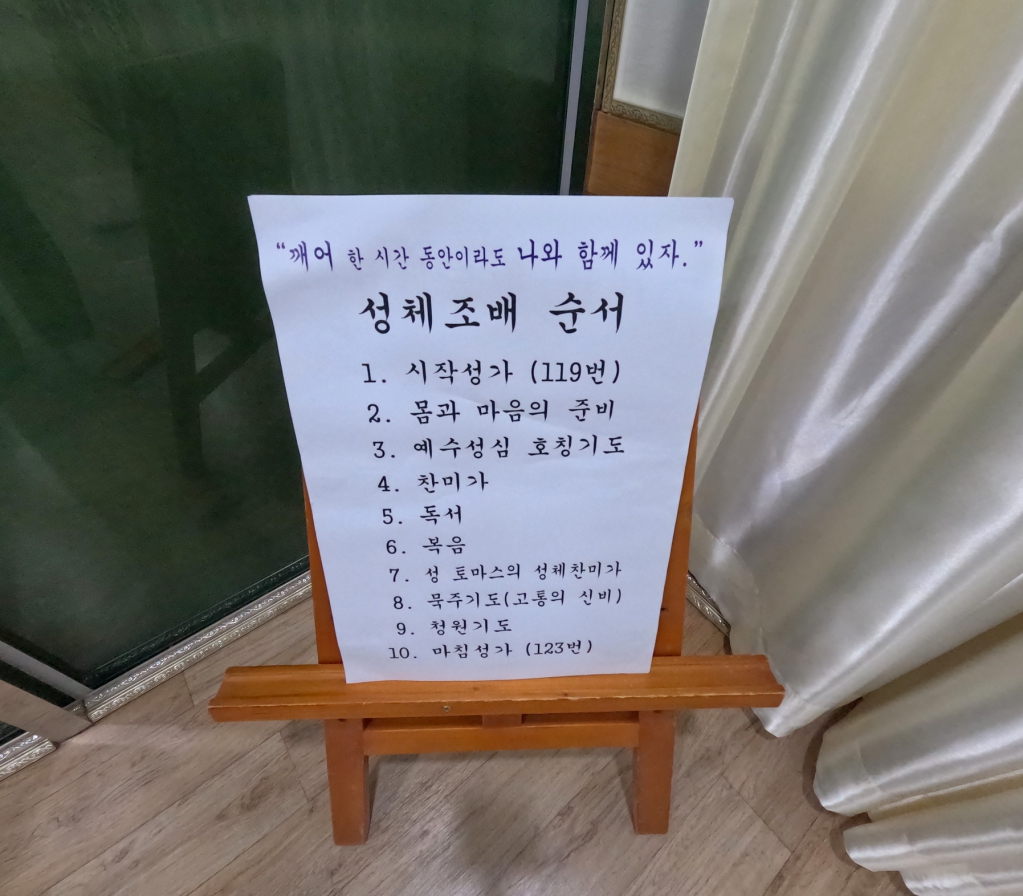 “깨어 한 시간 동안이라도 나와 함께 있자.”
성체조배 순서
1. 시작성가 (119번)
2. 몸과 마음의 준비
3. 예수성심 호칭기도
4. 찬미가
5. 독서
6. 복음
7. 성 토마스의 성체찬미가
8. 묵주기도(고통의 신비)
9. 청원기도
10. 마침성가 (123번)